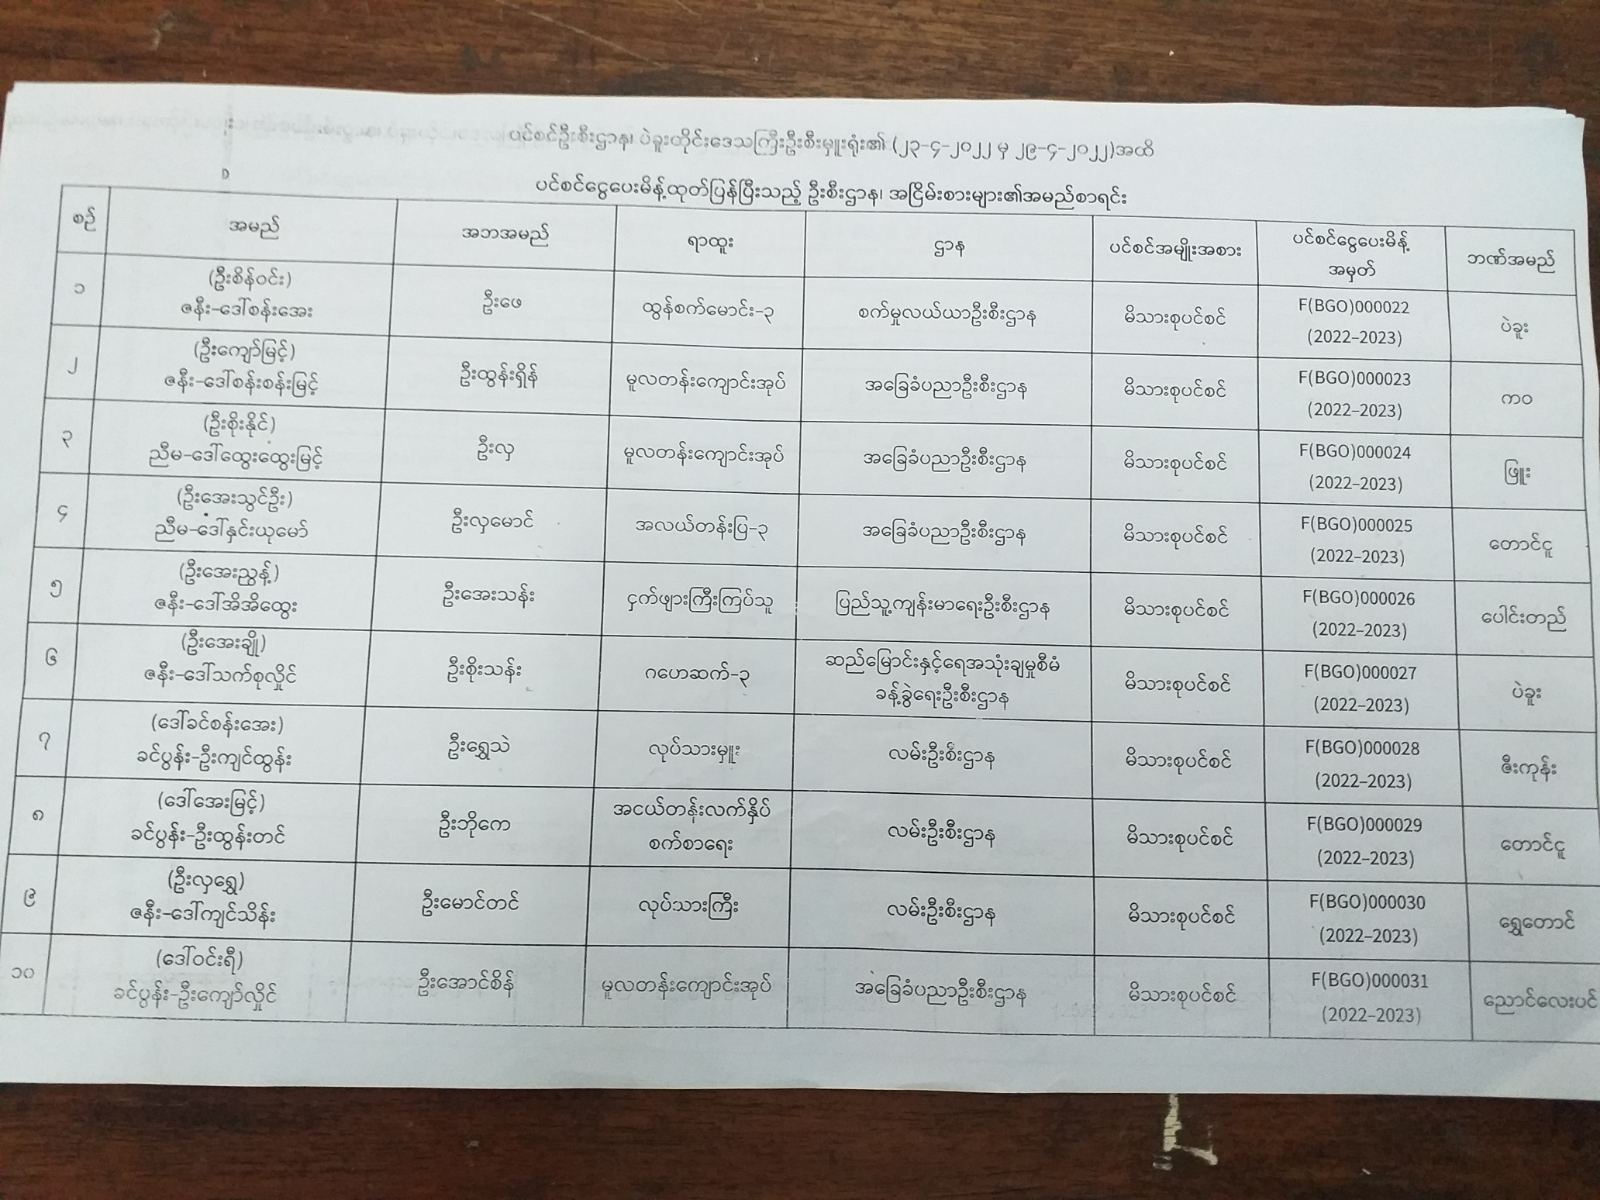 ပင်စင်ဦးစီးဌာန၊ ပဲခူးတိုင်းဒေသကြီးဦးစီးမှူးရုံး၏ (၂၃-၄-၂၀၂၂ မှ ၂၉-၄-၂၀၂၂)အထိ
ပင်စင်ငွေပေးမိန့်ထုတ်ပြန်ပြီးသည့် ဦးစီးဌာန၊ အငြိမ်းစားများ၏အမည်စာရင်း
စဉ် အမည် အဘအမည် ရာထူး ဌာန ပင်စင်အမျိုးအစား ပင်စင်ငွေပေးမိန့် ဘဏ်အမည်
အမှတ်
၁ (ဦးစိန်ဝင်း) ဦးဖေ ထွန်စက်မောင်း-၃ စက်မှုလယ်ယာဦးစီးဌာန မိသားစုပင်စင် F(BGO)000022 ပဲခူး
ဇနီး-ဒေါ်စန်းအေး (2022-2023)
၂ (ဦးကျော်မြင့်) ဦးထွန်းရှိန် မူလတန်းကျောင်းအုပ် အခြေခံပညာဦးစီးဌာန မိသားစုပင်စင် F(BGO)000023 ကဝ
ဇနီး-ဒေါ်စန်းစန်းမြင့် (2022-2023)
၃ (ဦးစိုးနိုင်) ဦးလှ မူလတန်းကျောင်းအုပ် အခြေခံပညာဦးစီးဌာန မိသားစုပင်စင် F(BGO)000024 ဖြူး
ညီမ-ဒေါ်ထွေးထွေးမြင့် (2022-2023)
၄ (ဦးအေးသွင်ဦး) ဦးလှမောင် အလယ်တန်းပြ-၃ အခြေခံပညာဦးစီးဌာန မိသားစုပင်စင် F(BGO)000025 တောင်ငူ
ညီမ-ဒေါ်နှင်းယုမော် (2022-2023)
၅ (ဦးအေးညွန့်) ဦးအေးသန်း ငှက်ဖျားကြီးကြပ်သူ ပြည်သူ့ကျန်းမာရေးဦးစီးဌာန မိသားစုပင်စင် F(BGO)000026 ပေါင်းတည်
ဇနီး-ဒေါ်အိအိထွေး (2022-2023)
၆ (ဦးအေးချို) ဦးစိုးသန်း ဂဟေဆက်-၃ ဆည်မြောင်းနှင့်ရေအသုံးချမှုစီမံ မိသားစုပင်စင် F(BGO)000027 ပဲခူး
ဇနီး-ဒေါ်သက်စုလှိုင် ခန့်ခွဲရေးဦးစီးဌာန (2022-2023)
၇ (ဒေါ်ခင်စန်းအေး) ဦးရွှေသဲ လုပ်သားမှူး လမ်းဦးစီးဌာန မိသားစုပင်စင် F(BGO)000028 ဇီးကုန်း
ခင်ပွန်း-ဦးကျင်ထွန်း (2022-2023)
၈ (ဒေါ်အေးမြင့်) ဦးဘိုကေ အငယ်တန်းလက်နှိပ် လမ်းဦးစီးဌာန မိသားစုပင်စင် F(BGO)000029 တောင်ငူ
ခင်ပွန်း-ဦးထွန်းတင် စက်စာရေး (2022-2023)
၉ (ဦးလှရွှေ) ဦးမောင်တင် လုပ်သားကြီး လမ်းဦးစီးဌာန မိသားစုပင်စင် F(BGO)000030 ရွှေတောင်
ဇနီး-ဒေါ်ကျင်သိန်း (2022-2023)
၁၀ (ဒေါ်ဝင်းရီ) ဦးအောင်စိန် မူလတန်းကျောင်းအုပ် အခြေခံပညာဦးစီးဌာန မိသားစုပင်စင် F(BGO)000031 ညောင်လေးပင်
ခင်ပွန်း-ဦးကျော်လှိုင် (2022-2023)